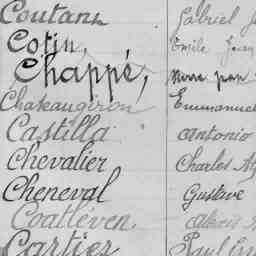 Coutans Gabriel
Cotin, Emile Jean
Chappé,
Chateaugiron Emmanuel
Castilla Antonio
Chevalier Charles
Cheneval Gustave
Coatléven Alexis
Carties Paul